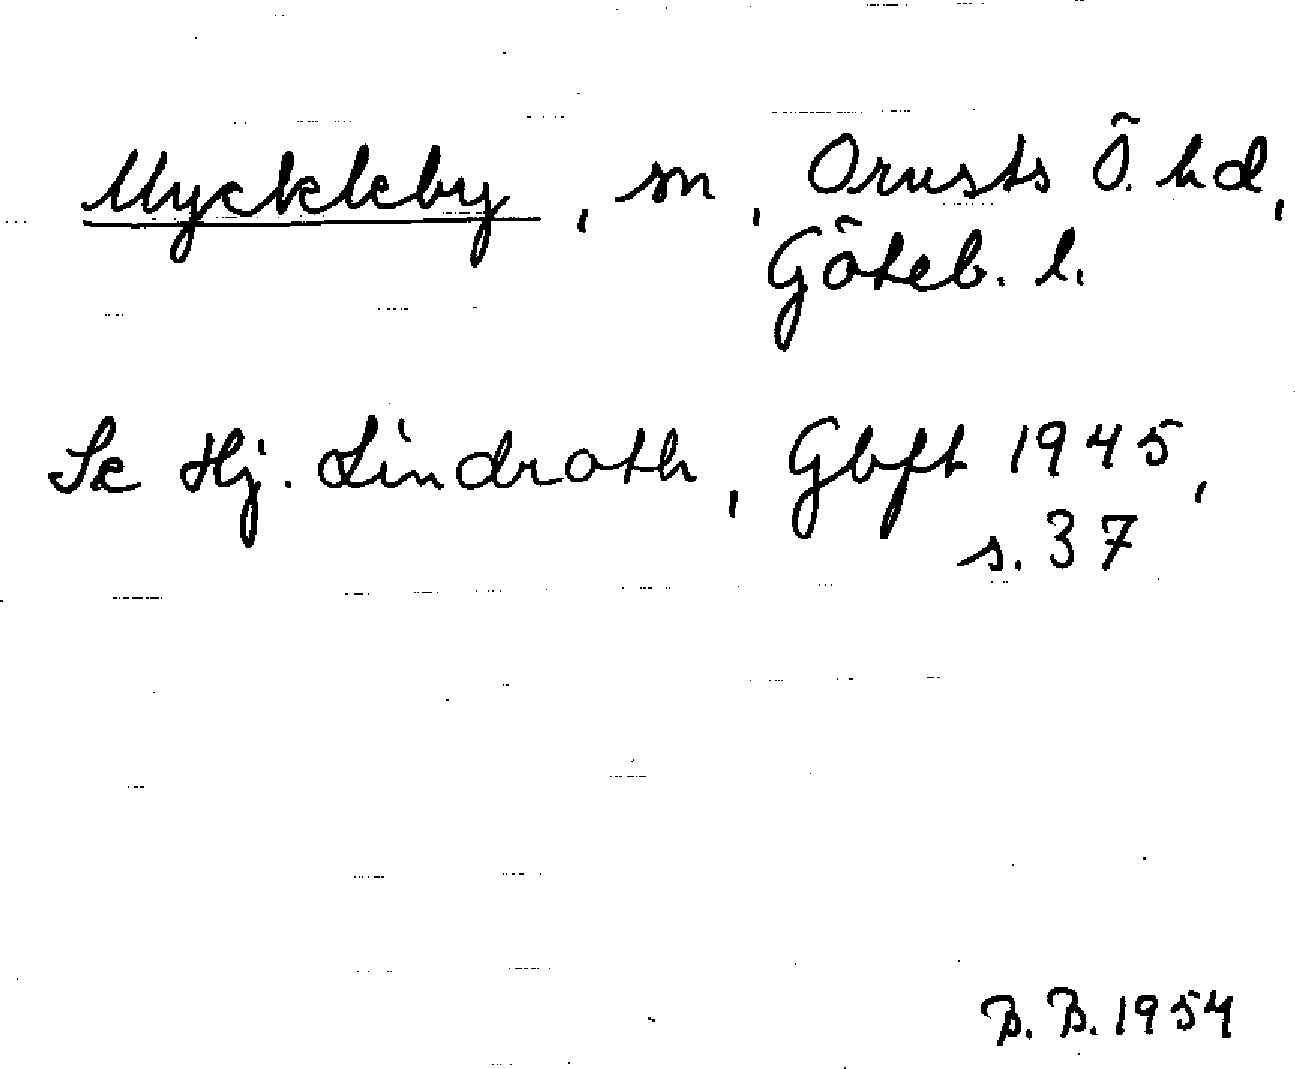 Myckleby, sn, Orusts Ö. hd,
Göteb. l.
Se Hj. Lindroth, Gbft 1945,
s. 37
B. B. 1954